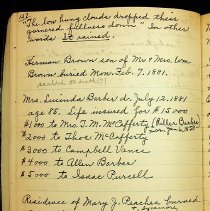 "The low hung clouds dropped their
garnered fullness down" In other
words It rained.
Herman Brown son of Mr & Mrs Wm
Brown buried Mon. Feb. 7, 1881.
Mrs. Lucinda Barber d. July 12, 1881
age 86. Life insured for $15000
$1000 to Mrs. T. M. McCafferty (Miller Barber
$2000 to Thos McCafferty
$3000 to Campbell Vance
$4000 to Allen Barber
$5000 to Isaac Purcell
Residence of Mary J. Peaches burned